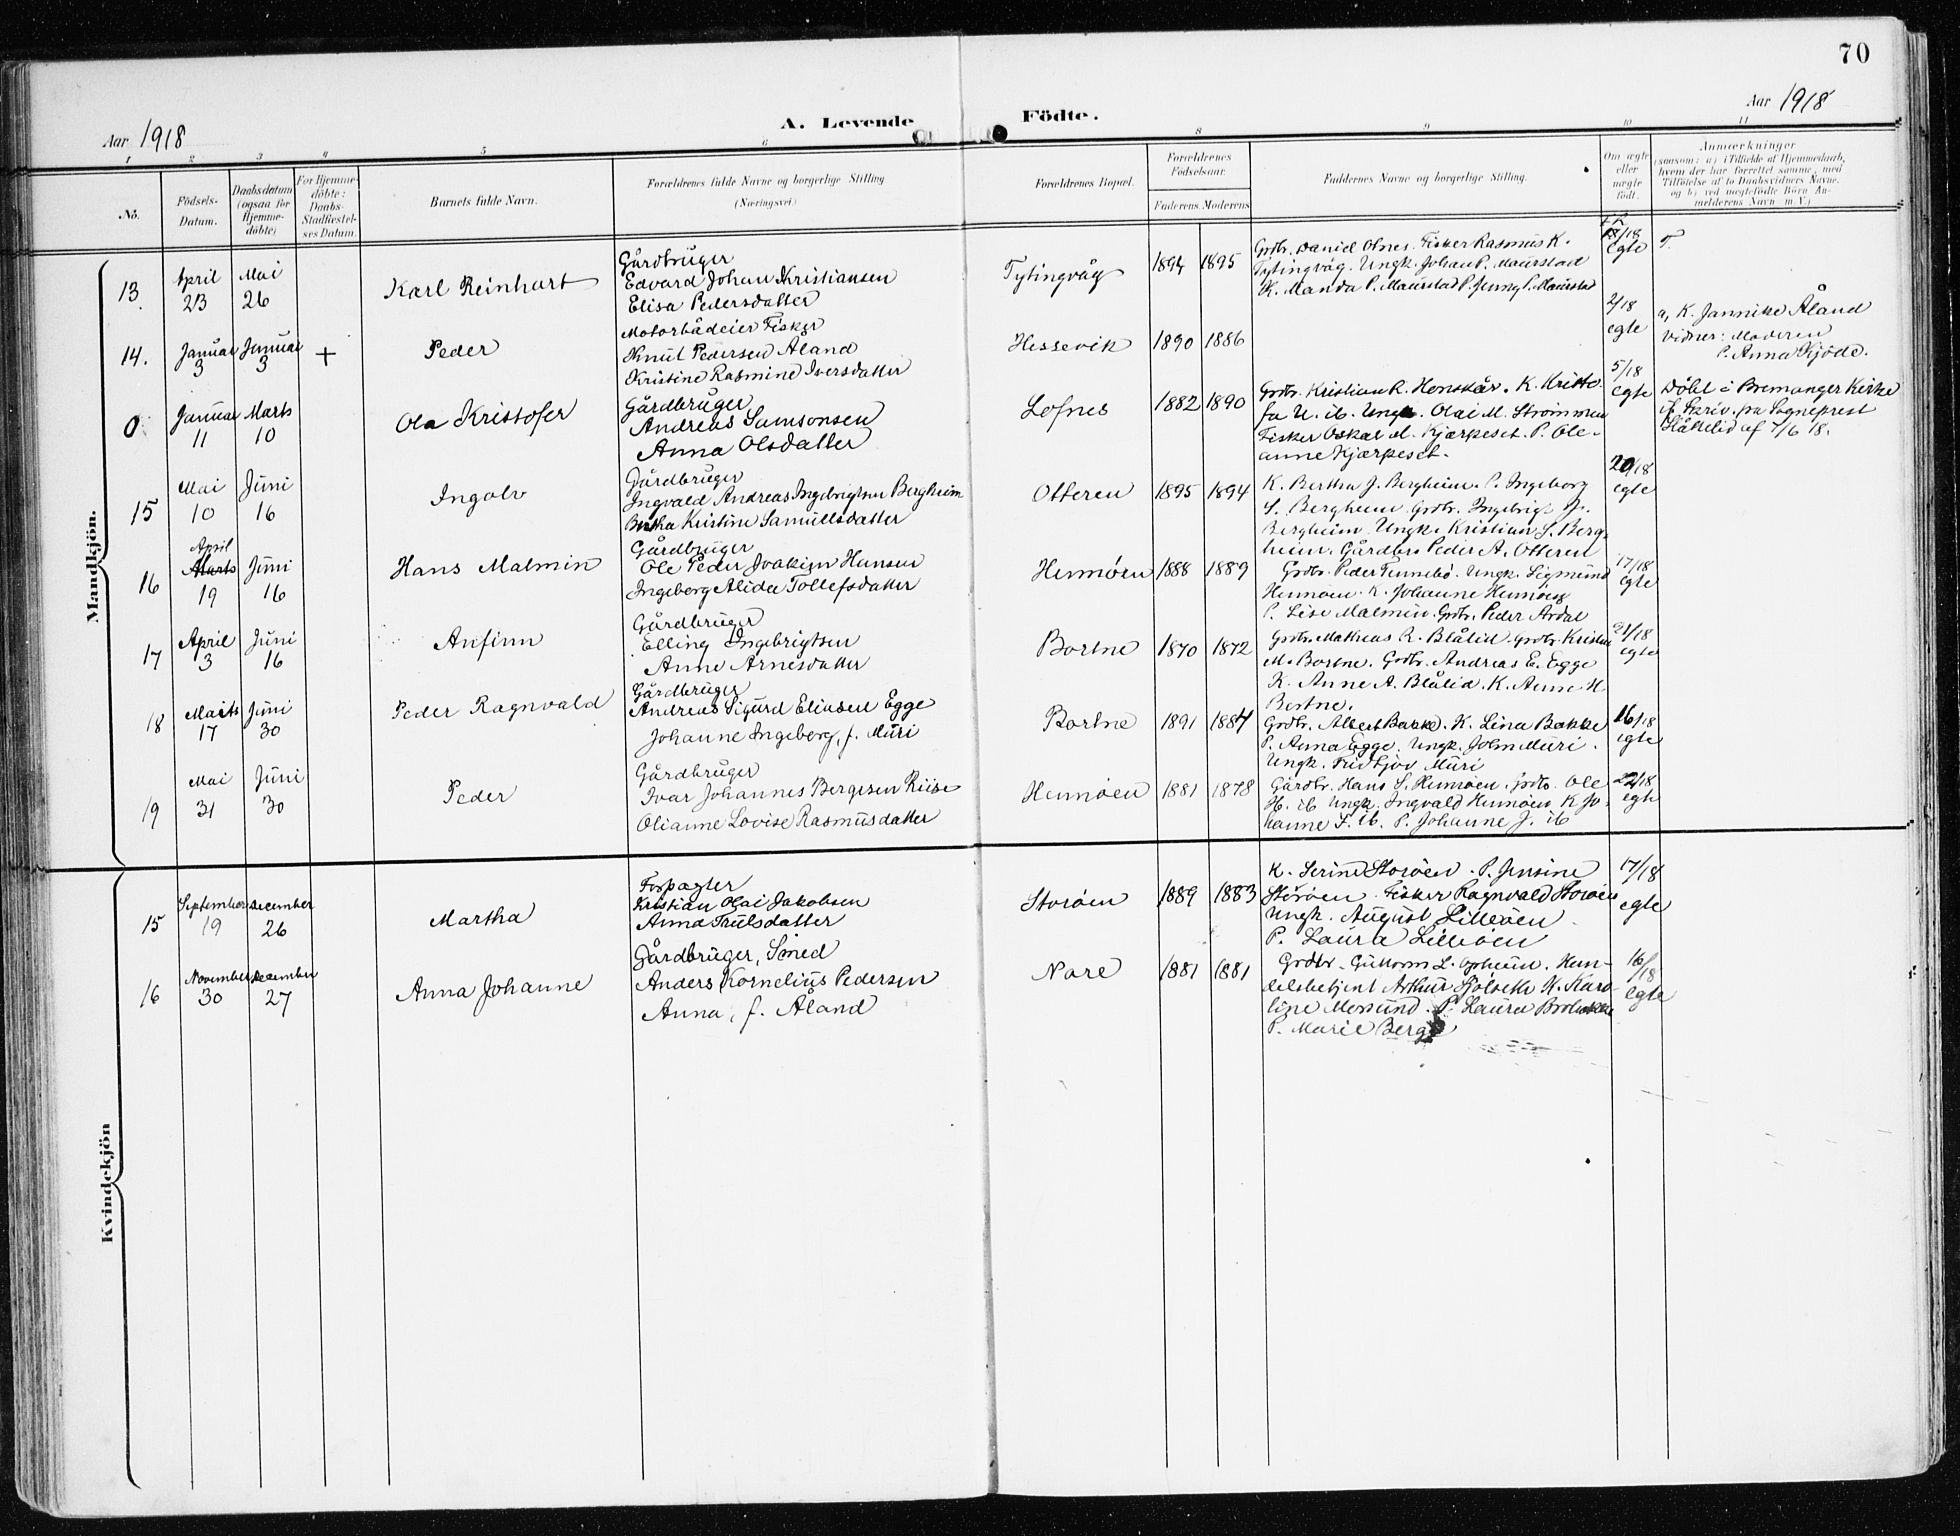 70
Aar 1918
A. Levende Födte.
Aar 1918
1 2 3 4 5 6 8 9 10 11
No.
Födsels-Datum.
Daabsdatum (ogsaa for Hjemme-döbte)
For Hjemme-döbte: Daabs-Stadfæstel-ses Datum.
Barnets fulde Navn.
Forældrenes fulde Navne og borgerlige Stilling (Næringsvei.)
Forældrenes Bopæl.
Forældrenes Födselsaar.
Faderens. Moderens
Faddernes Navne og borgerlige Stilling.
Om ægte eller uægte födt.
Anmærkninger
(saasom: a) i Tilfælde af Hjemmedaab,
hvem der har forrettet samme, med
Tilföielse af to Daabsvidners Navne.
og b) ved uægtefödte Börn An-
melderens Navn m. V.)
Mandkjön.
13. April 23 Mai 26 Karl Reinhart
Gårdbruger
Edvard Johan Kristiansen
Elisa Pedersdatter
Tytingvåg 1894 1895
Grdbr. Daniel Olnes. Fisker Rasmus K.
Tytingvåg. Ungk. Johan P. Maurstad
K. Manda P. Maurstad P. Jenny P. Maurstad
/18 egte
F.
14. Januar 3 Januar 3 + Peder
Motorbådeier Fisker
Knut Pedersen Åland
Kristine Rasmine Iversdatter
Hessevik 1890 1886
2/18 egte
a, K. Jannikke Åland
Vidner: Moderen
P. Anna Kjöde.
0 Januar 11 Marts 10 Ola Kristofer
Gårdbruger
Andreas Samsonsen
Anna Olsdatter
Lofnes 1882 1890
Grdbr. Kristian R. Honskår. K. Kristo-
fa U. ib. Ungk. Olai M. Strømmen
Fisker Oskar M. Kjærpeset. P. Ole-
anne Kjærpeset.
5/18 egte
Döbt i Bremanger Kirke
if. Skriv. fra Sogneprest
Slåttelid af 7/6 18.
15 Mai 10 Juni 16 Ingolv
Gårdbruger
Ingvald Andreas Ingebrigtsen Bergheim
Bertha Kristine Samuelsdatter
Otteren 1895 1894
K. Bertha J. Bergheim. P. Ingeborg
S. Bergheim Grdbr. Ingebrigt A.
Bergheim. Ungk. Kristian S. Berg-
heim. Gårdbr. Peder A. Otteren
20/18 egte
16 April Marts 19 Juni 16 Hans Malmin
Gårdbruger
Ole Peder Joakim Hansen
Ingeborg Alida Tollefsdatter
Hennøen 1888 1889
Grdbr. Peder Tennebö. Ungk. Sigmund
Hennøen. K. Johanne Hennøen
P. Lise Malmin. Grdbr. Peder Årdal
17/18 egte
17 April 3 Juni 16 Anfinn
Gårdbruger
Elling Ingebrigtsen
Anne Arnesdatter
Bortne 1870 1872
Grdbr. Mathias R. Blålid. Grdbr. Kristen
M. Bortne. Grdbr. Andreas E. Egge
K. Anne A. Blålid. K. Anne H.
Bortne.
21/18 egte
18 Marts 17 Juni 30 Peder Ragnvald
Gårdbruger
Andreas Sigurd Eliasen Egge
Johanne Ingeborg, f. Muri
Bortne 1891 1887
Grdbr. Albert Bakke. K. Lina Bakke
P. Anna Egge. Ungk. John Muri.
Ungk. Fridtjov Muri
16/18 egte
19 Mai 31 Juni 30 Peder
Gårdbruger
Ivar Johannes Bergesen Riise
Olianne Lovise Rasmusdatter
Hennøen 1881 1878
Gårdbr. Hans S. Hennøen. Grdbr. Ole
H. ib Ungk. Ingvald Hennøen K Jo-
hanne F. ib. P. Johanne J. ib
22/18 egte
Kvindekjön
15 September 19 December 26 Martha
Forpagter
Kristian Olai Jakobsen
Anna Trulsdatter
Storøen 1889 1883
K. Serine Storøen. P. Jensine
Storøen. Fisker Ragnvald Storøen
Ungk. August Lilleøen.
P. Laura Lilleøen
17/18 egte
16 November 30 December 27 Anna Johanne
Gårdbruger, Smed
Anders Kornelius Pedersen
Anna, f. Åland
Nore 1881 1881
Grdbr. Guttorm L. Opheim. Han-
delsbetjent Arthur Sjölseth K. Karo-
line Morsund. P. Laura
P. Marie Berge
16/18 egte